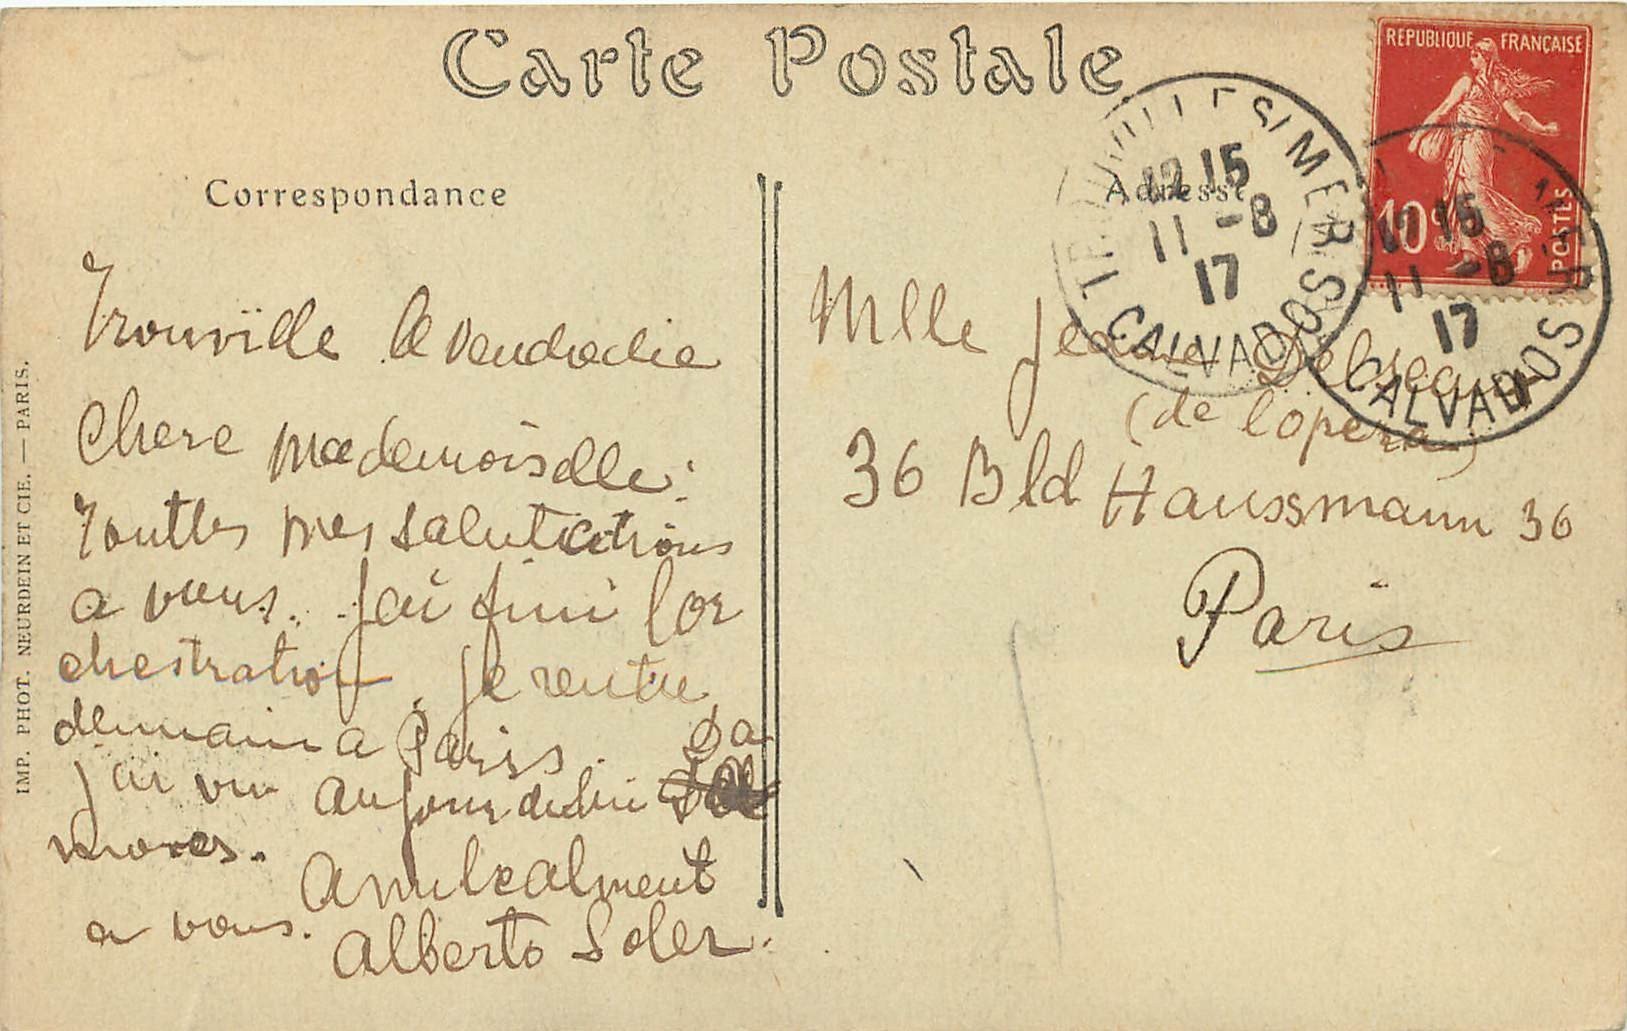 Carte Postale
Correspondance
Adresse
REPUBLIQUE FRANÇAISE
10c
POSTES
TROUVILLE S/MER
12 15
11 -8
17
CALVADOS
12 15
11 -8
17
CALVADOS
IMP. PHOT. NEURDEIN ET CIE. — PARIS.
Trouville le vendredie
Chere Mademoiselle:
Toutles mes salutations
a vous. J'ai fini l'or
chestration. Je rentre
demain a Pariss. Da
j'ai vu aujourduhui
mores.
Amicalment
a vous.
Alberto Soler.
Mlle Jeanne
(de l'opera)
36 Bld Haussmann 36
Paris